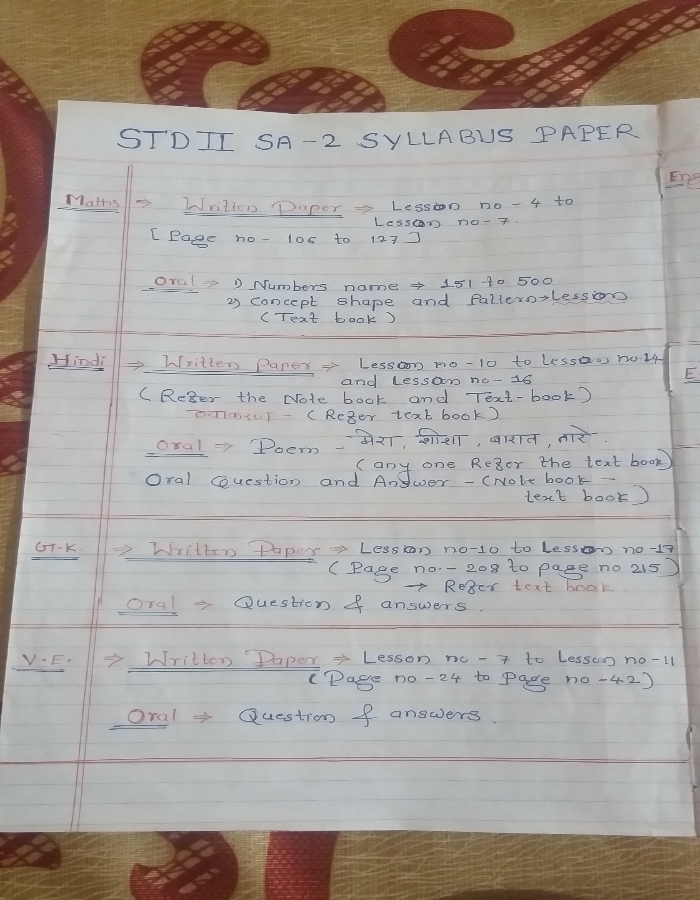 STD II SA-2 SYLLABUS PAPER
Eng
Maths ⇒ Written Paper ⇒ Lesson no - 4 to
Lesson no - 7.
[Page no - 106 to 127]
Oral ⇒ 1) Numbers name ⇒ 151 to 500
2) Concept shape and Pattern → Lesson
(Text book)
Hindi ⇒ Written paper ⇒ Lesson no - 10 to Lesson no. 14
and Lesson no - 16
E
(Refer the Note book and Text-book)
व्याकरण - (Refer text book)
Oral ⇒ Poem - मेरा, शीशा, बारात, तारे.
(any one Refer the text book)
Oral Question and Answer - (Note book -
text book)
G.K ⇒ Written Paper ⇒ Lesson no-10 to Lesson no -17
(Page no. - 208 to page no 215)
→ Refer text book
Oral ⇒ Question & answers.
V.E. ⇒ Written Paper ⇒ Lesson no - 7 to Lesson no -11
(Page no - 24 to Page no - 42)
Oral ⇒ Question & answers.